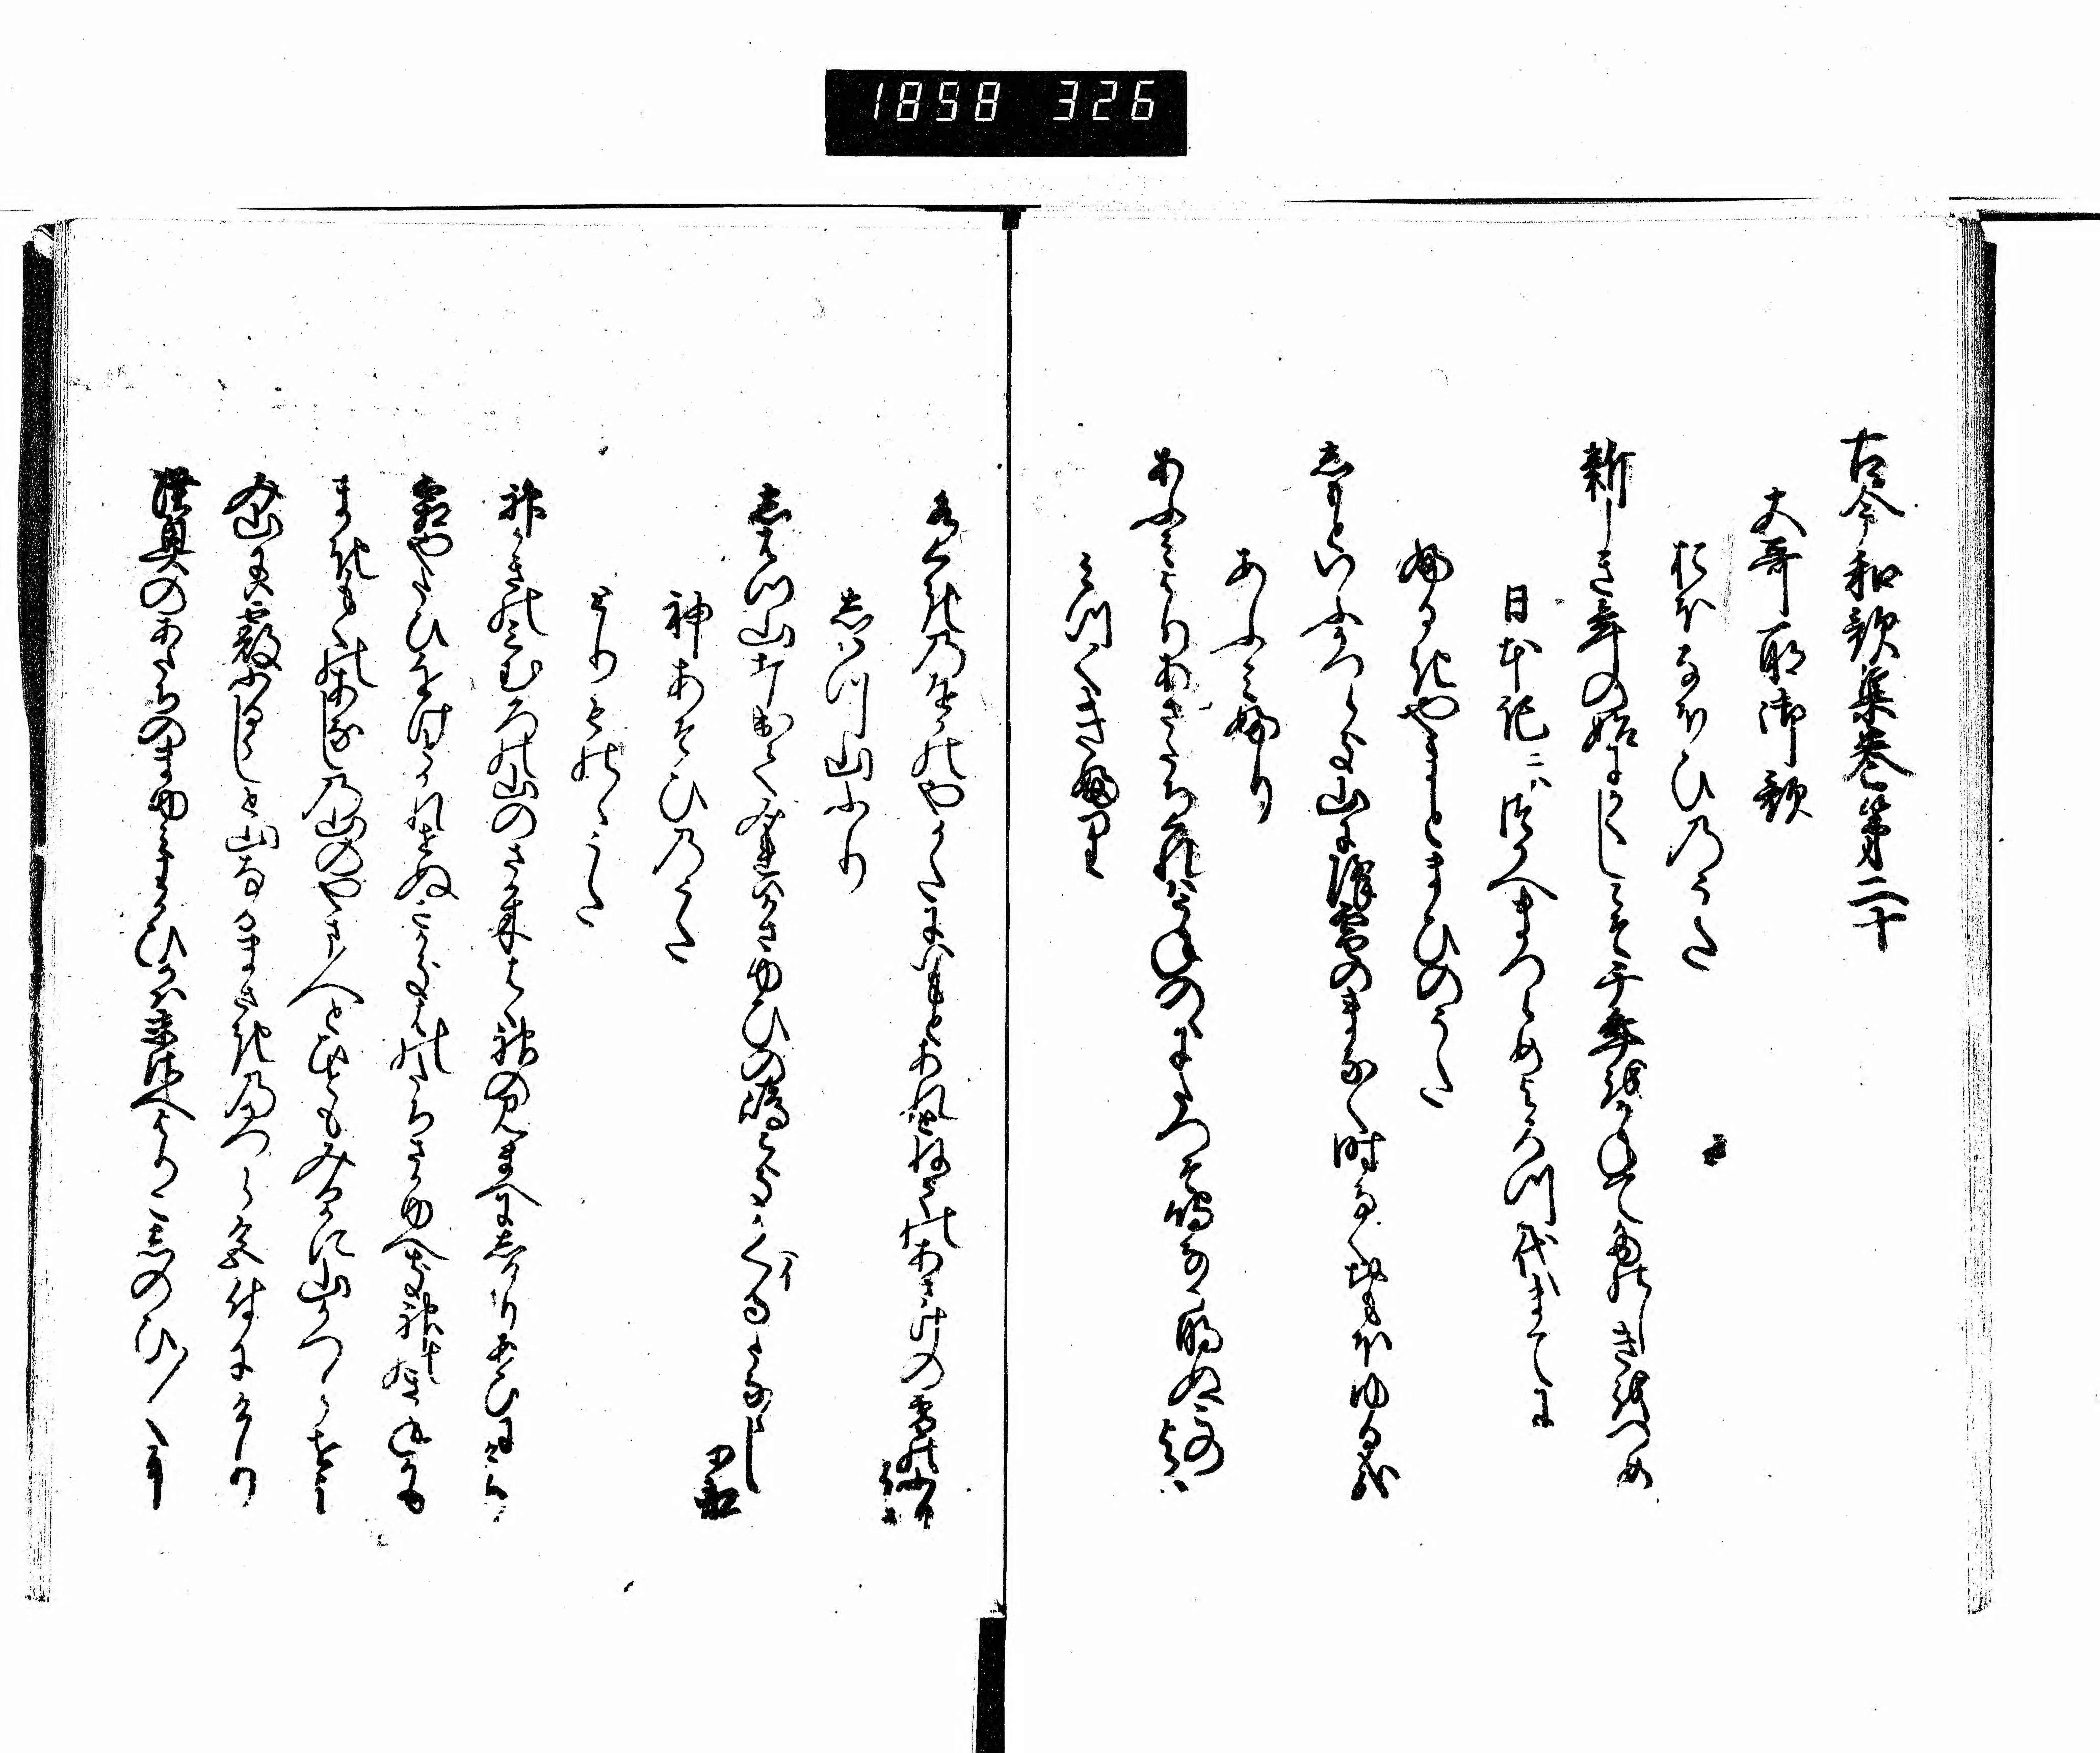 1858 326
古今和歌集巻第二十
大哥所御歌
おほなほひのうた
新しき年の始にかくしこそ千年をかねてたのしきをつめ
日本記ニハつかへまつらめよろつ代まてに
ふるきやまとまひのうた
しもとゆふかつらき山に降雪のまなく時なくおもほゆる哉
あふみふり
あふみよりあさたちくれはうねのゝにたつそ鳴なる明ぬこのよは
みつくきふり
水くきのをかのやかたにいもとあれとねてのあさけの霜のふりはも
しはつ山ふり
しはつ山打出てみれはかさゆひの嶋こきかくるたなゝしを舟
神あそひのうた
とりものゝうた
神かきのみむろの山のさかきはゝ神のみまへにしけりあひにけり
霜やたひをけとかれせぬさかきはのたちさかゆへき神のきねかも
まきもくのあなしの山のやま人とひともみるかに山かつらせよ
み山にはあられふるらしと山なるまさきのかつら色付にけり
陸奥のあたちのまゆみわかひかは末さへよりこしのひ〳〵に